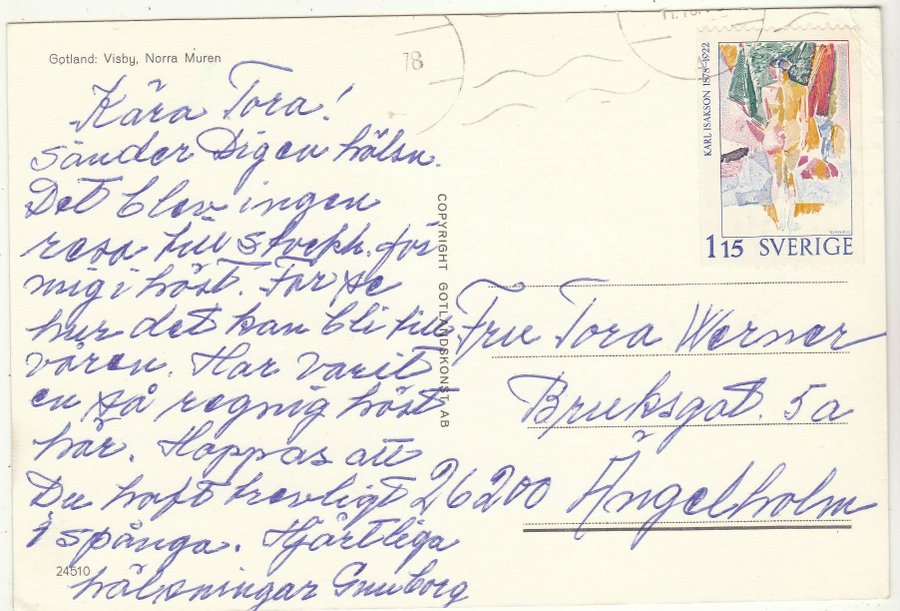 Gotland: Visby, Norra Muren
Kära Tora!
Sänder Dig en hälsn.
Det blev ingen
resa till Stockh. för
mig i höst. Får se
hur det kan bli till
våren. Har varit
en så regnig höst
här. Hoppas att
Du haft trevligt
i Spånga. Hjärtliga
hälsningar Gunborg
24510
COPYRIGHT GOTLANDSKONST AB
78
KARL ISAKSON 1878-1922
1 15 SVERIGE
Fru Tora Werner
Bruksgat. 5a
26200 Ängelholm